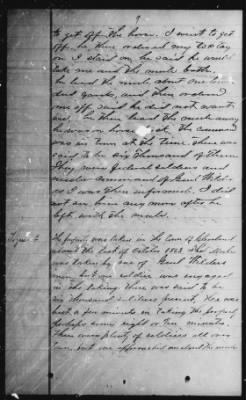 7
to get off the horse. I went to get
off, he then ordered me to stay
on I staid on, he said he would
take me and the mule both,
he lead the mule about one hun
dred yards, and then ordered
me off, said he did not want
me, he then lead the mule away
he was on horse back. The command
was in town at the time. There was
said to be six thousand of them
They were federal soldiers and
under command of Genl
as I was then informed. I did
not see him any more after he
left with the mule.
The property was taken in the town of Cleveland
about the last of October 1863. The mule
was taken by one of Genl
men, but one soldier was engaged
in the taking. There was said to be
six thousand soldiers present. He was
but a few minutes in taking the property
perhaps some eight or ten minutes.
There were plenty of soldiers all over
town, but one